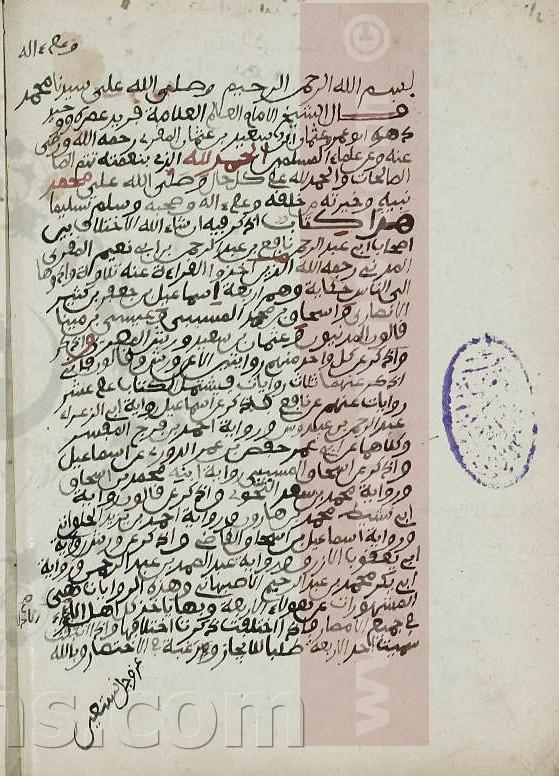 وعلى ءاله
بسم الله الرحمن الرحيم وصلى الله على سيدنا محمد
قال الشيخ الامام العالم العلامة فريد عصره ووحيد
دهره ابو عمرو عثمان ابن سعيد بن عثمان المقرىء رحمه الله ورضي
عنه وعن علماء المسلمين الحمد لله الذي بنعمته تتم الصا
لحات والحمد لله على كل حال وصلى الله على محمد
نبيه وخيرته من خلقه وعلى ءاله وصحبه وسلم تسليما
هذا كتاب اذكر فيه ان شاء الله الاختلاف بين
اصحاب ابي عبد الرحمن نافع بن عبد الرحمن بن ابي نعيم المقرىء
المدني رحمه الله الذين اخذوا القراءة عنه تلاوة وادوها
الى الناس حكاية وهم اربعة اسماعيل بن جعفر بن كثير
الانصاري واسحاق بن محمد المسيبي وعيسى بن مينا
قالون المدنيون وعثمان بن سعيد ورش المصري واذكر
واذكر عن كل واحد منهم روايتين الا عن ورش وقالون فاني
اذكر عنهما ثلاث روايات فيشتمل الكتاب على عشر
روايات عنهم عن نافع فاذكر عن اسماعيل رواية ابي الزعراء
عبد الرحمن بن عبدوس ورواية احمد بن فرح المفسر
وكلاهما عن ابي عمر حفص بن عمر الدوري عن اسماعيل
واذكر عن اسحاق المسيبي رواية ابنه محمد بن اسحاق
ورواية محمد بن سعدان النحوي واذكر عن قالون رواية
ابي نشيط محمد بن هارون ورواية احمد بن يزيد الحلواني
ورواية اسماعيل بن اسحاق القاضي واذكر عن ورش رواية
ابي يعقوب الازرق ورواية عبد الصمد بن عبد الرحمن ورواية
ابي بكر محمد بن عبد الرحيم الاصبهاني وهذه الروايات هي
المشهورات عن هؤلاء الاربعة وبها ياخذ اهل الاداء
في جميع الامصار فاذا اختلفت ذكرت اختلافها واذا اتفقت
سميت احد الاربعة طلبا للايجاز ورغبة في الاختصار وبالله
عز وجل نستعين